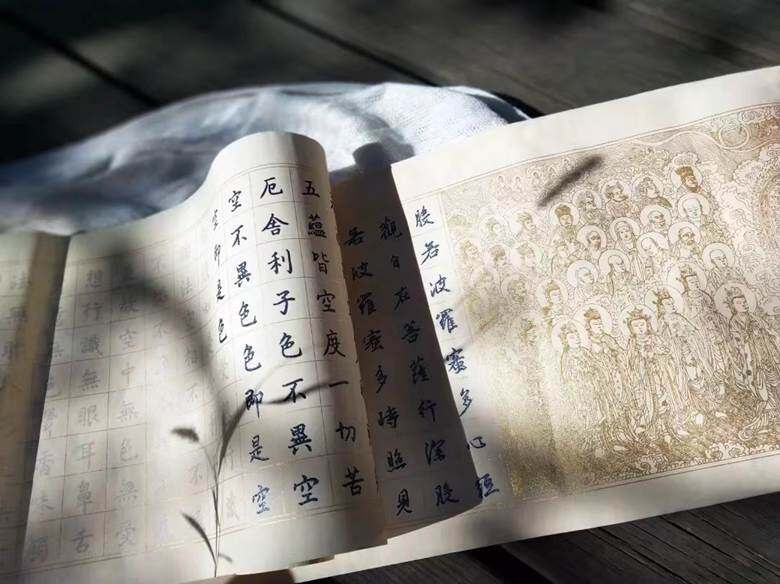 般若波羅蜜多心經
觀自在菩薩行深般
若波羅蜜多時照見
五蘊皆空度一切苦
厄舍利子色不異空
空不異色色即是空
空即是色
故空中無色無受
想行識無眼耳鼻舌
聲香味觸
法無